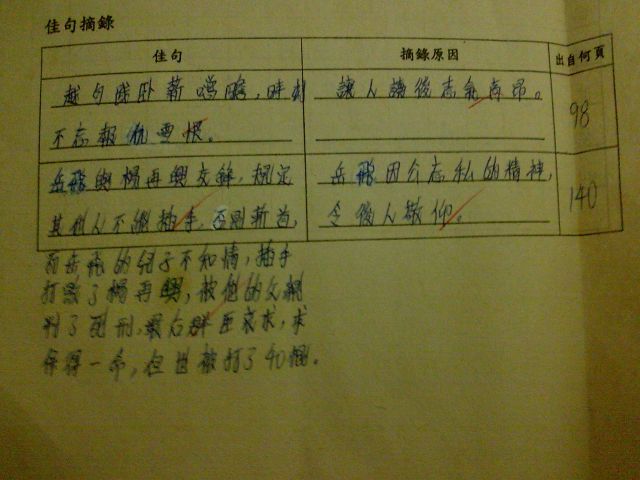 佳句摘錄
佳句 摘錄原因 出自何頁
越句踐卧薪嚐膽,時刻 讓人讀後志氣高昂。 98
不忘報仇雪恨。
岳飛與楊再興交鋒,規定 岳飛因公忘私的精神, 140
其他人不繼插手,否則斬首, 令後人敬仰。
而岳飛的兒子不知情,插手
打敗了楊再興,被他的父親
判了死刑,最后群臣哀求,求
保得一命,但也被打了40棍。